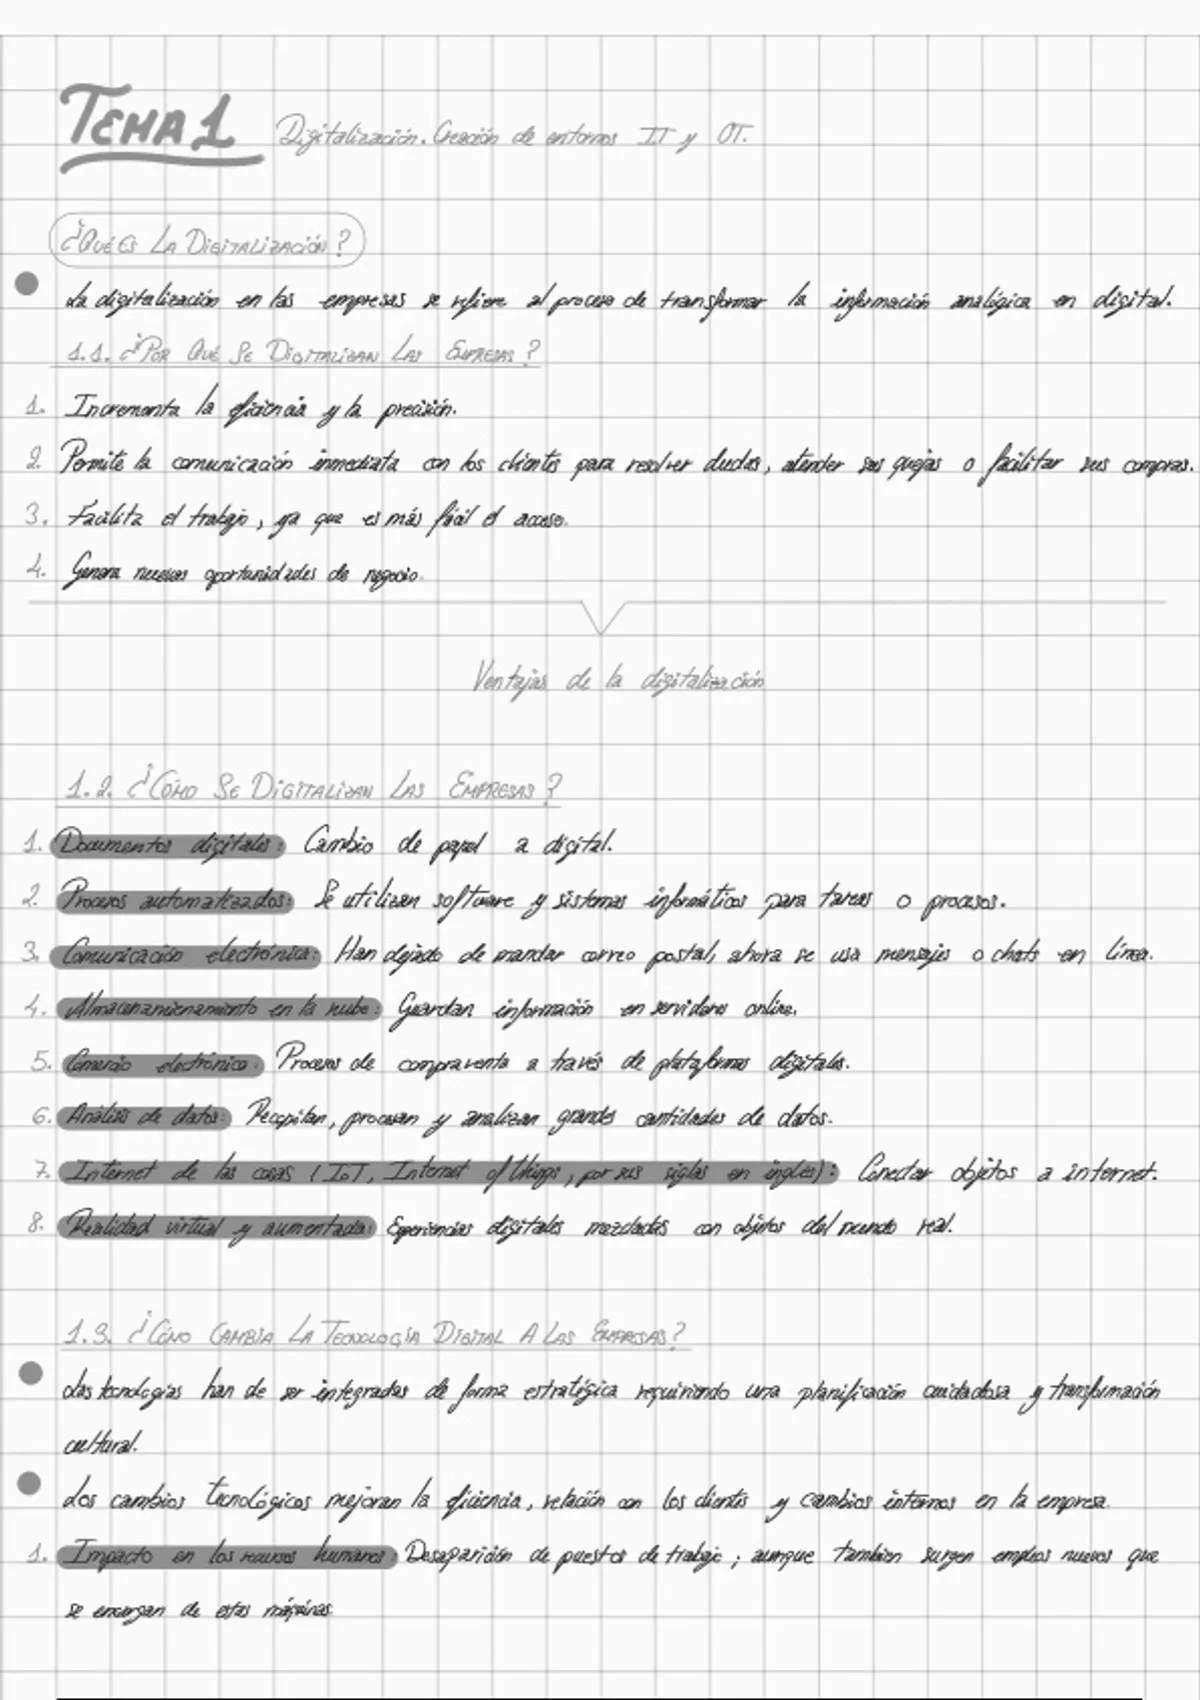 TEMA 1 Digitalización. Creación de entornos IT y OT.
¿QUÉ ES LA DIGITALIZACIÓN?
La digitalización en las empresas se refiere al proceso de transformar la información analógica en digital.
1.1. ¿POR QUÉ SE DIGITALIZAN LAS EMPRESAS?
1. Incrementa la eficiencia y la precisión.
2. Permite la comunicación inmediata con los clientes para resolver dudas, atender sus quejas o facilitar sus compras.
3. Facilita el trabajo, ya que es más fácil el acceso.
4. Genera nuevas oportunidades de negocio.
Ventajas de la digitalización
1.2. ¿CÓMO SE DIGITALIZAN LAS EMPRESAS?
1. Documentos digitales: Cambio de papel a digital.
2. Procesos automatizados: Se utilizan software y sistemas informáticos para tareas o procesos.
3. Comunicación electrónica: Han dejado de mandar correo postal, ahora se usa mensajes o chats en línea.
4. Almacenamienamiento en la nube: Guardan información en servidores online.
5. Comercio electrónico: Procesos de compraventa a través de plataformas digitales.
6. Análisis de datos: Recopilan, procesan y analizan grandes cantidades de datos.
7. Internet de las cosas (IoT, Internet of things, por sus siglas en inglés): Conectar objetos a internet.
8. Realidad virtual y aumentada: Experiencias digitales mezcladas con objetos del mundo real.
1.3. ¿CÓMO CAMBIA LA TECNOLOGÍA DIGITAL A LAS EMPRESAS?
Las tecnologías han de ser integradas de forma estratégica requiriendo una planificación cuidadosa y transformación
cultural.
Los cambios tecnológicos mejoran la eficiencia, relación con los clientes y cambios internos en la empresa.
1. Impacto en los recursos humanos: Desaparición de puestos de trabajo; aunque tambien surgen empleos nuevos que
se encargan de estas máquinas.